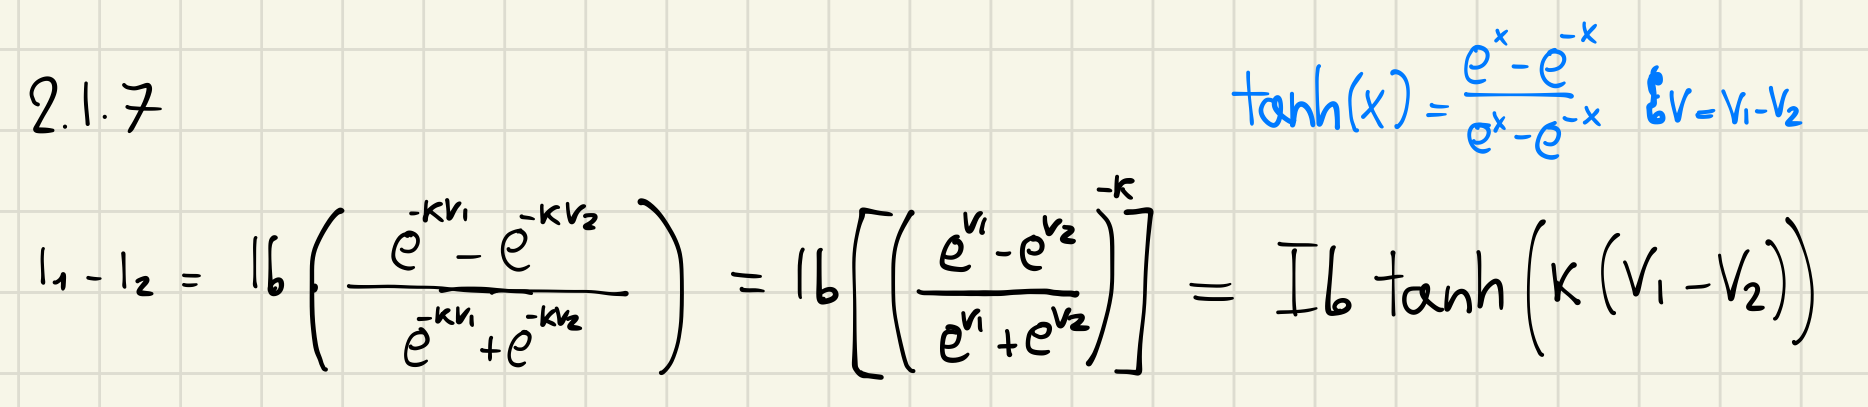 tanh(x) = (e^x - e^-x)/(e^x - e^-x) δV = V₁-V₂
2.1.7
I₁ - I₂ = Ib ( (e^-κV₁ - e^-κV₂)/(e^-κV₁ + e^-κV₂) ) = Ib [ ( (e^V₁ - e^V₂)/(e^V₁ + e^V₂) )^-κ ] = Ib tanh(κ(V₁ - V₂))